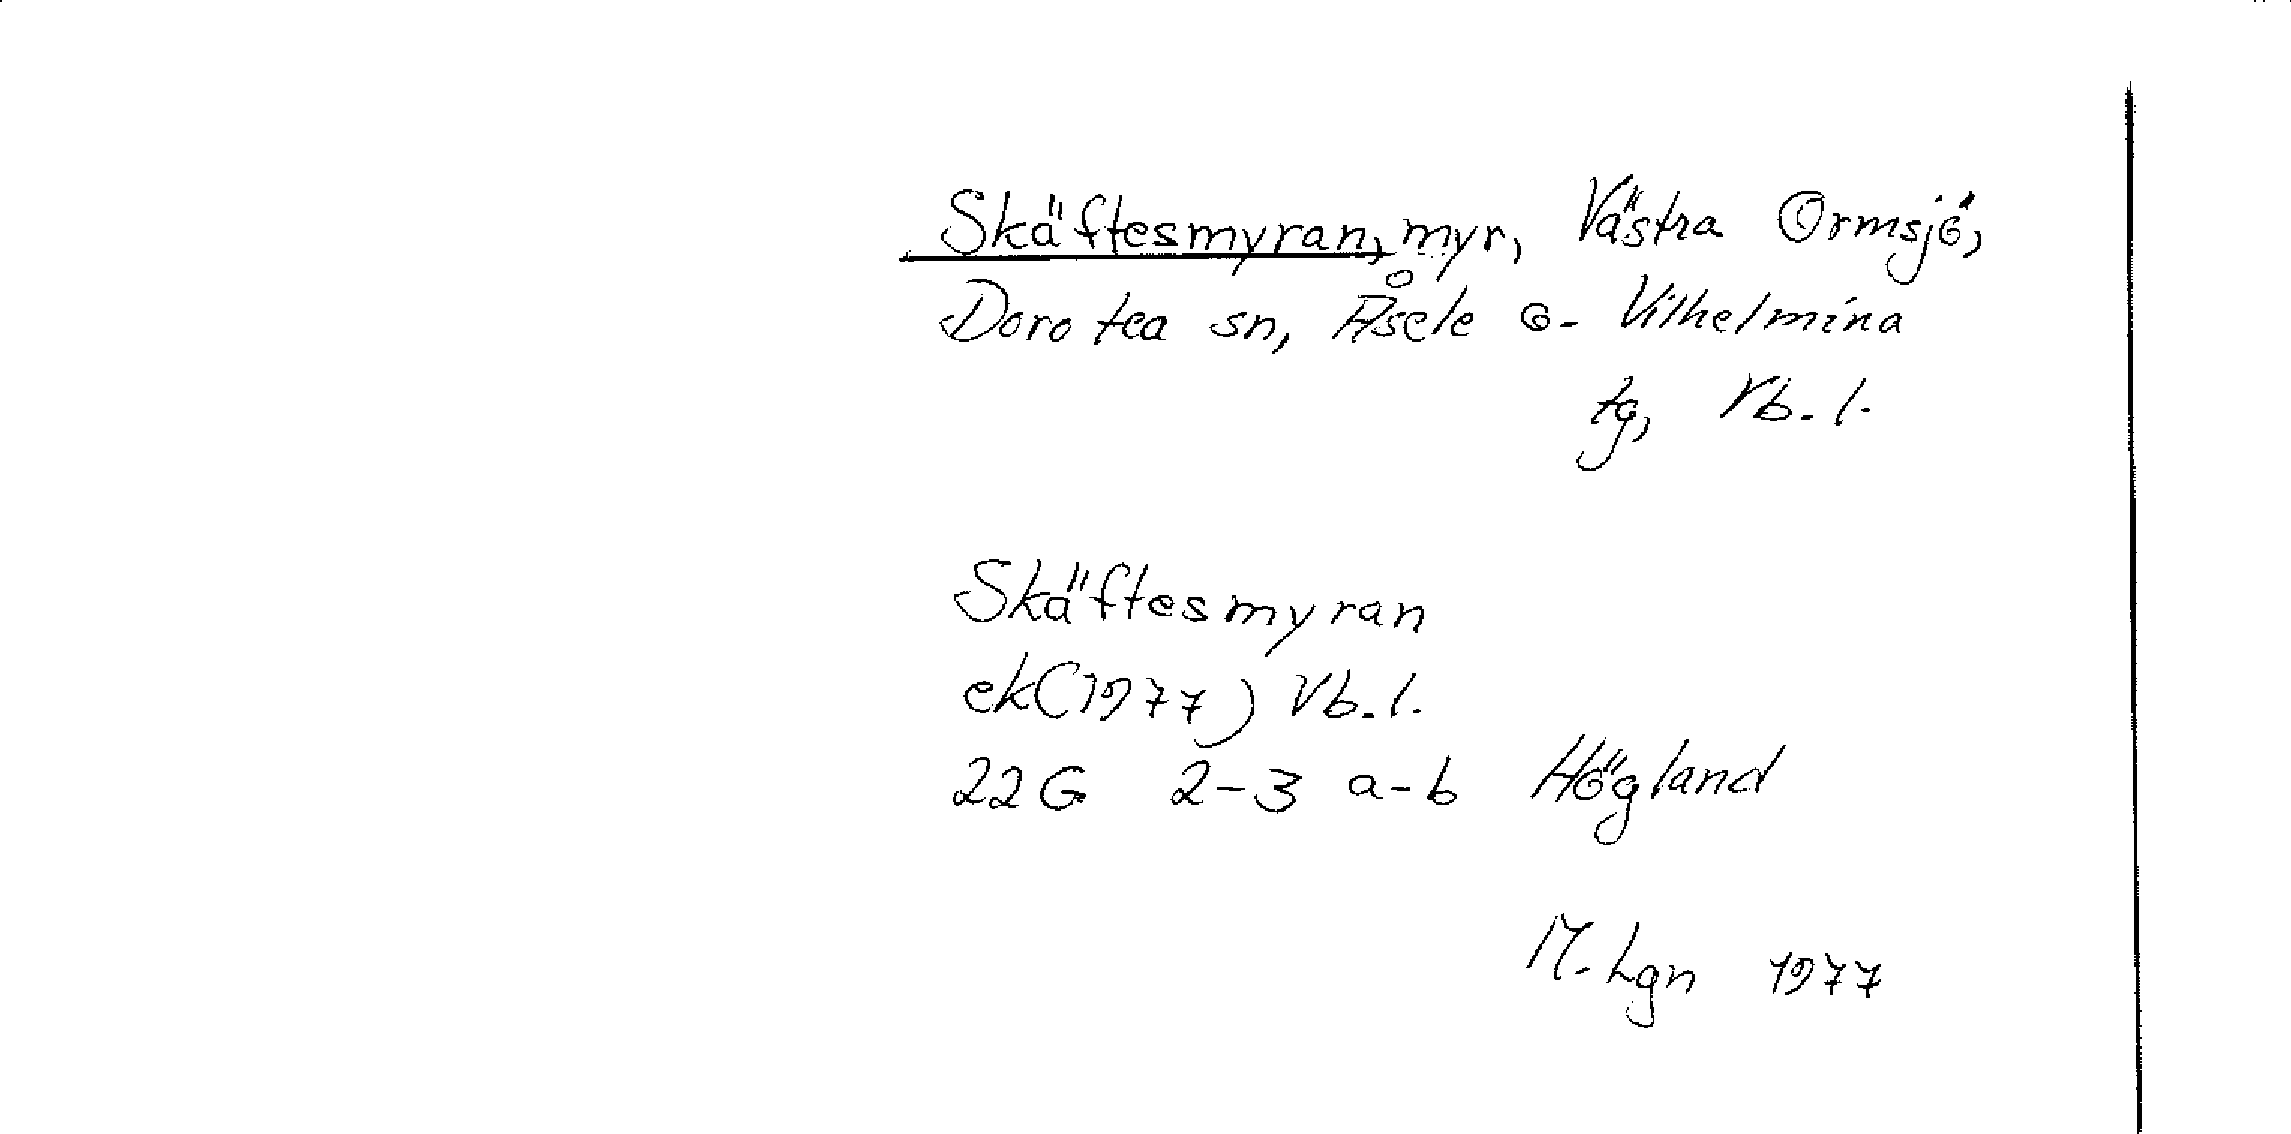 Skäftesmyran, myr, Västra Ormsjö,
Dorotea sn, Åsele o. Vilhelmina
tg, Vb. l.
Skäftesmyran
ek(1977) Vb. l.
22G 2-3 a-b Högland
M. Lgn 1977